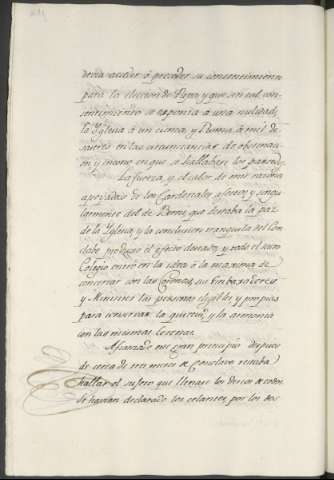 devia asistir ó preceder su consentimiento
para la eleccion de Papa, y que sin tal con-
sentimiento se exponia á una nulidad,
la Yglesia á un cisma, y Roma á mil de-
sastres en las circunstancias de obstinaci-
on y encono en que se hallaban los partidos.
La fuerza, y el calor de mis razones
apoyadas de los Cardenales afectos, y singu-
larmente del de Bernis, que deseaba la paz
de la Yglesia, y la conclusion tranquila del Con-
clave produxo el efecto deseado, y todo el Sacro
Colegio entró en la idea ó la maxima de
concertar con las Coronas, sus Embaxadores
y Ministros las personas elegibles y propias
para conservar la quietud, y la armonia
con las mismas Coronas.
Afianzado este gran principio despues
de cerca de tres meses de Conclave restaba
hallar el sujeto que llenase los deseos de todos.
Se havian declarado los celantes por los dos